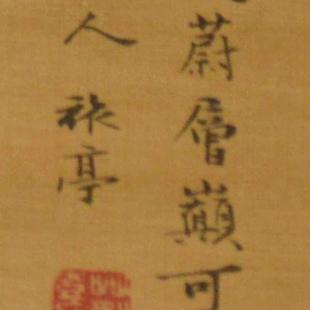 蔚層巔可
人張亭